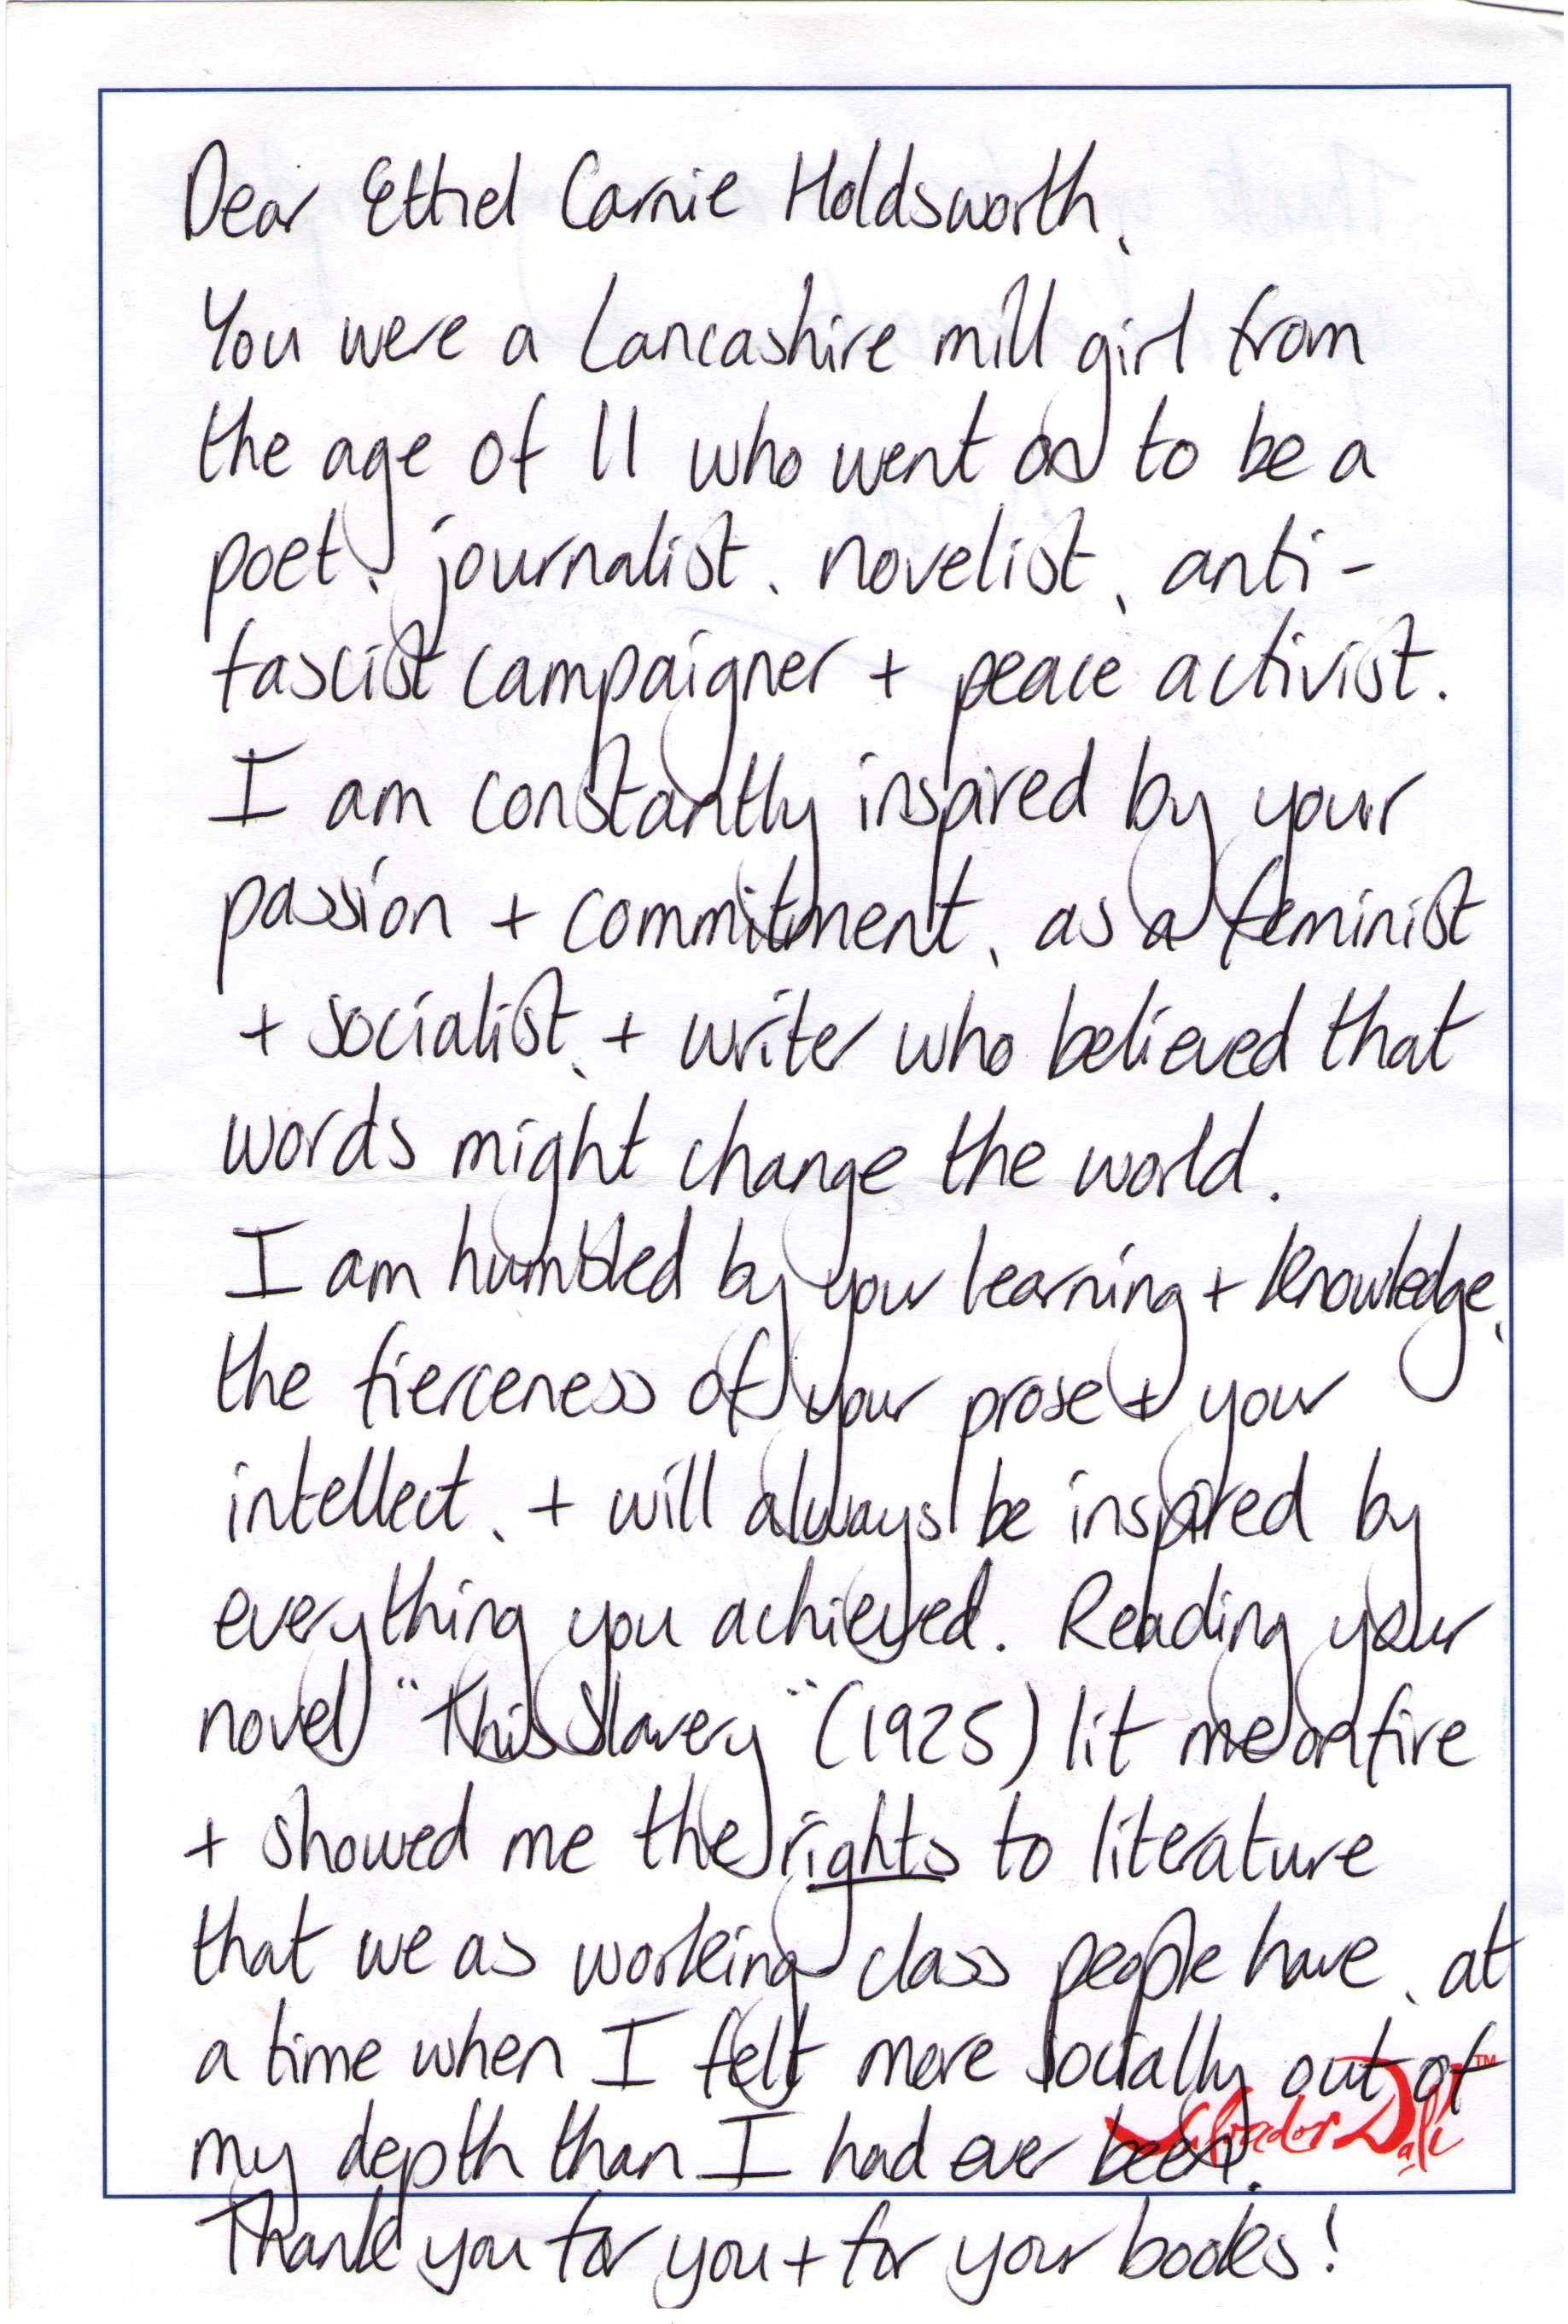 Dear Ethel Carnie Holdsworth,
You were a Lancashire mill girl from
the age of 11 who went on to be a
poet, journalist, novelist, anti-
fascist campaigner + peace activist.
I am constantly inspired by your
passion + commitment, as a feminist
+ socialist, + writer who believed that
words might change the world.
I am humbled by your learning + knowledge,
the fierceness of your prose + your
intellect, + will always be inspired by
everything you achieved. Reading your
novel "This Slavery" (1925) lit me on fire
+ showed me the rights to literature
that we as working class people have, at
a time when I felt more socially out of
my depth than I had ever been.
Salvador Dalí™
Thank you for you + for your books!